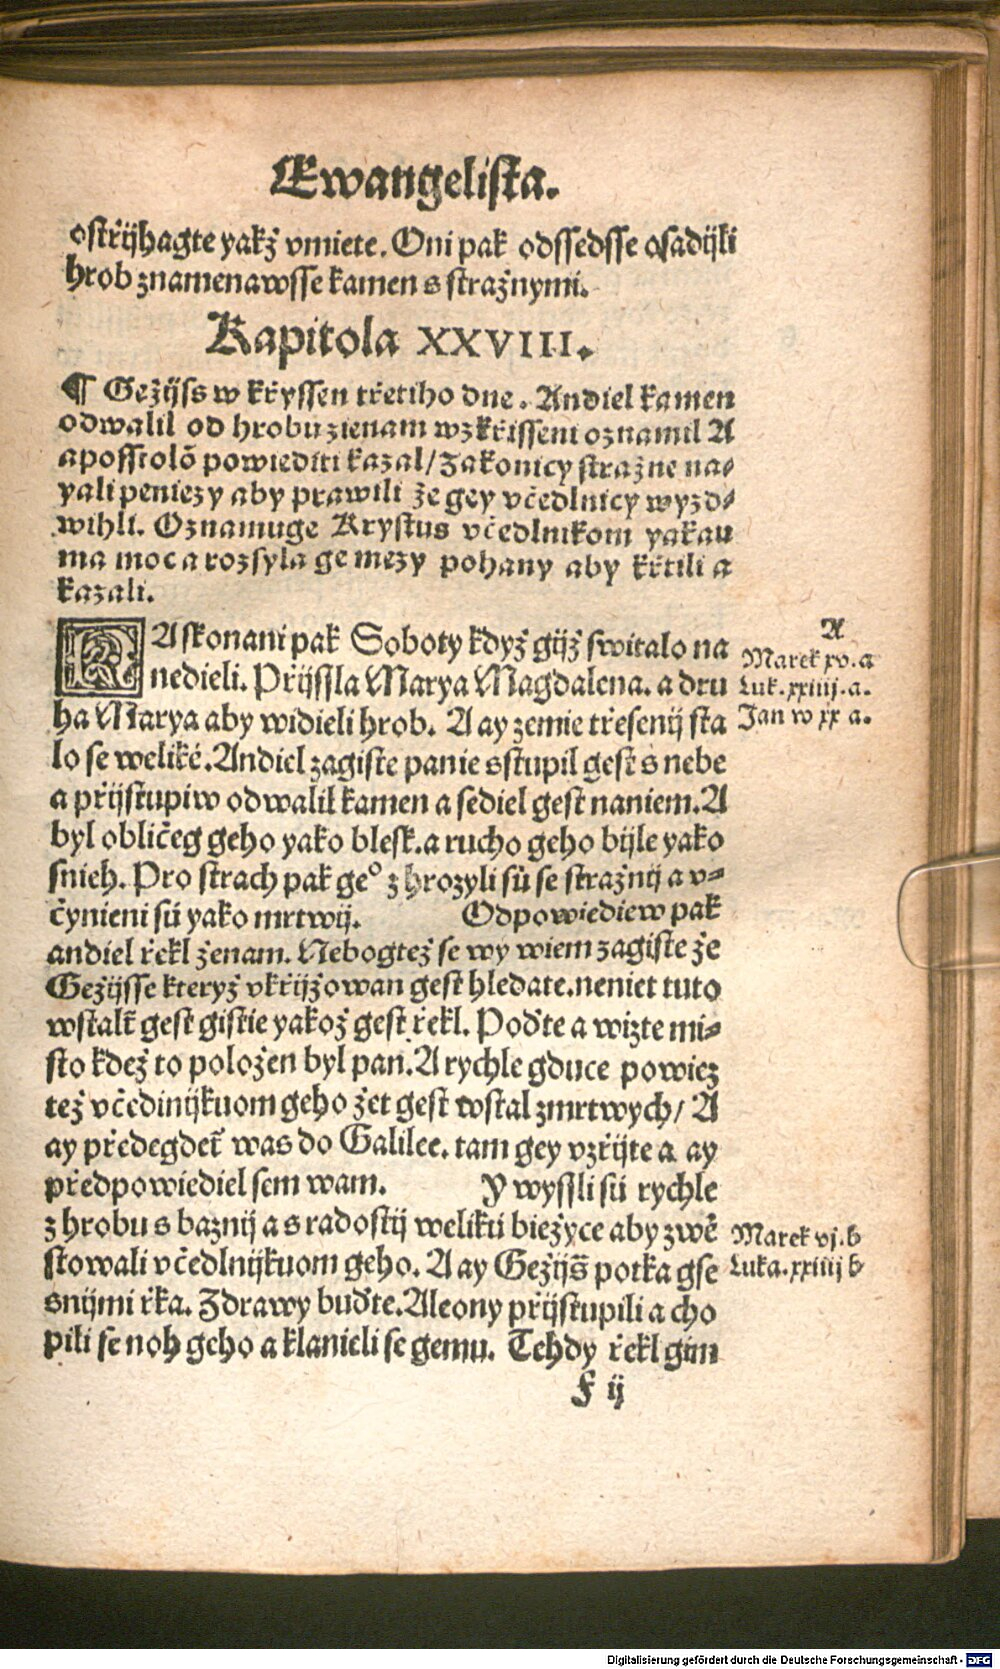 Ewangelista.
ostřijhagte yakž vmiete. Oni pak odssedsse osadijli
hrob znamenawsse kamen s stražnymi.
Kapitola XXVIII.
¶ Gežijss w křyssen třetiho dne. Andiel kamen
odwalil od hrobu zienam wzkřisseni oznamil A
aposstolō powiediti kazal/ Zakonicy stražne na⸗
yali peniezy aby prawili že gey včedlnicy wyzd⸗
wihli. Oznamuge Krystus včedlnikom yakau
ma moc a rozsyla ge mezy pohany aby křtili a
kazali.
RA skonani pak Soboty když gijž switalo na
nedieli. Přijssla Marya Magdalena. a dru
ha Marya aby widieli hrob. A ay zemie třesenij sta
lo se weliké. Andiel zagiste panie sstupil gest s nebe
a přijstupiw odwalil kamen a sediel gest naniem. A
byl obličeg geho yako blesk. a rucho geho bijle yako
snieh. Pro strach pak geº zhrozyli sů se stražnij a v⸗
čynieni sů yako mrtwij. Odpowiediew pak
andiel řekl ženam. Nebogtež se wy wiem zagiste že
Gežijsse kteryž vkřijžowan gest hledate. neniet tuto
wstalt̄ gest gistie yakož gest řekl. Poďte a wizte mi⸗
sto kdež to položen byl pan. A rychle gduce powiez
tež včedinijkuom geho žet gest wstal zmrtwych/ A
ay předegdet̄ was do Galilee. tam gey vzřijte a ay
předpowiediel sem wam. Y wyssli sů rychle
z hrobu s baznij a s radostij weliků biežyce aby zwē
stowali včedlnijkuom geho. A ay Gežijs̄ potka gse
snijmi řka. Zdrawy buďte. Aleony přijstupili a cho
pili se noh geho a klanieli se gemu. Tehdy řekl gim
F ij
A
Marek xv. a
Luk. xxiiij. a.
Jan w xx a.
Marek vj. b
Luka. xxiiij b
Digitalisierung gefördert durch die Deutsche Forschungsgemeinschaft - DFG